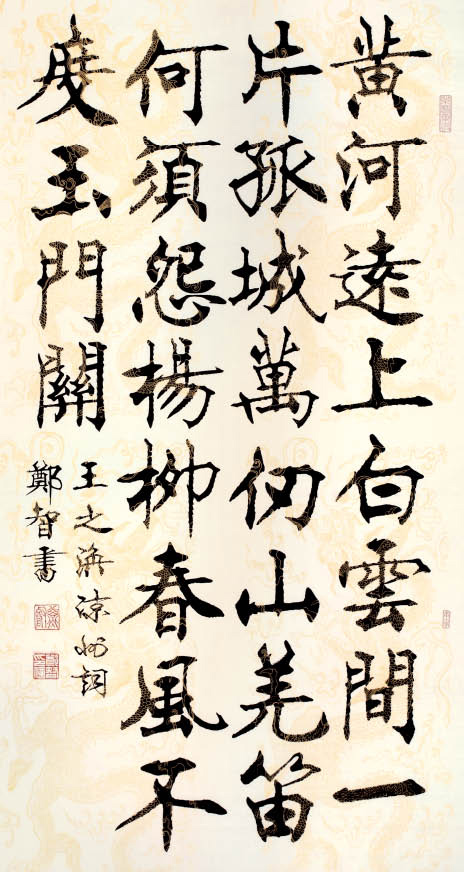 黄河遠上白雲間一
片孤城萬仞山羌笛
何須怨楊柳春風不
度玉門關
王之渙涼州詞
鄭智書